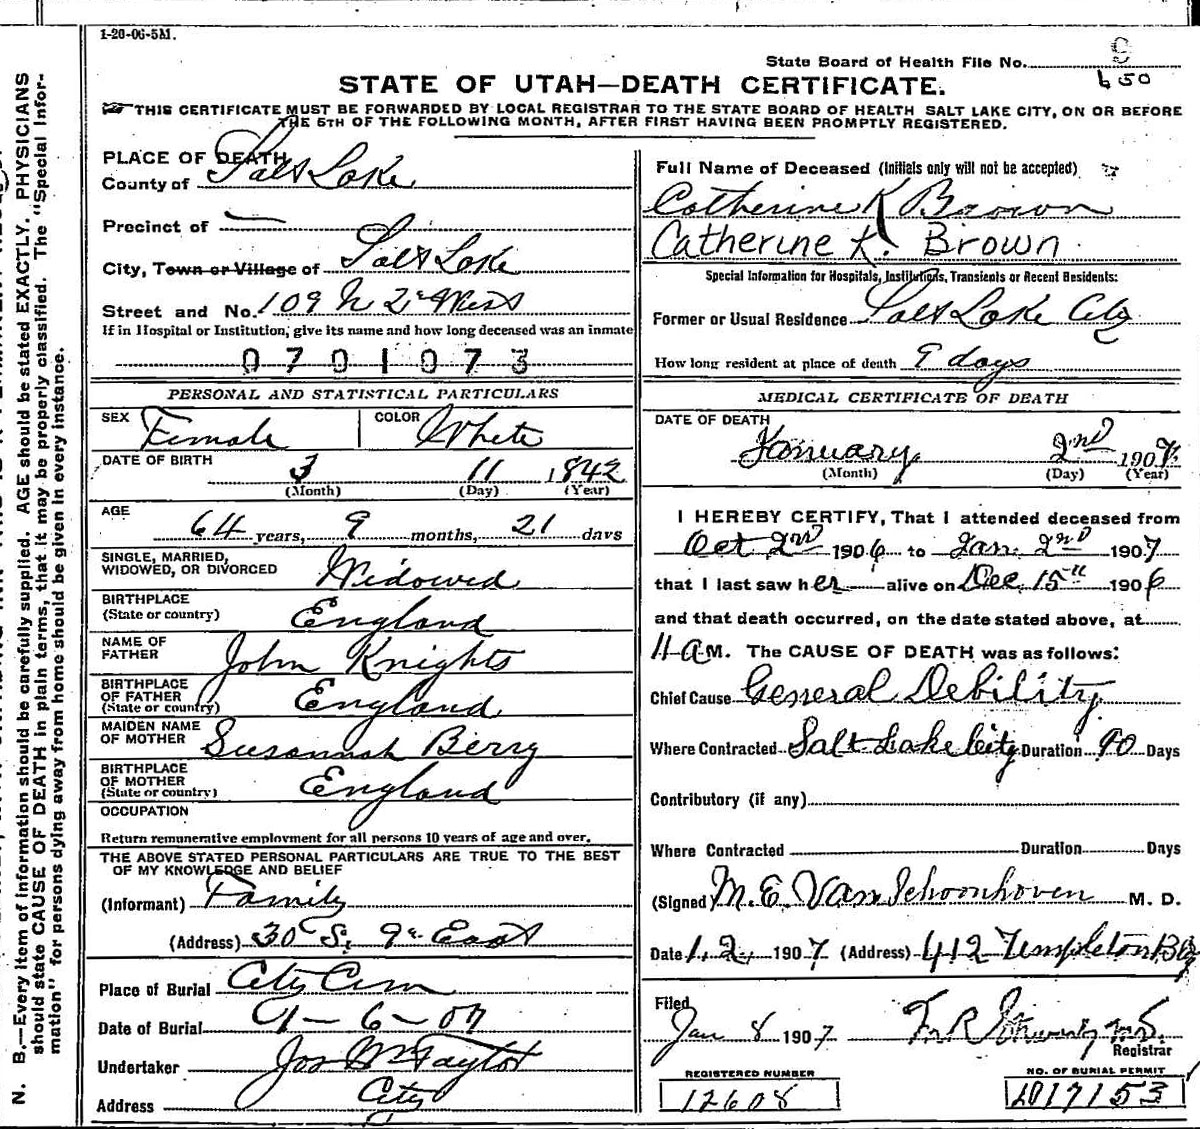 1-20-06-5M.
State Board of Health File No.
650
STATE OF UTAH—DEATH CERTIFICATE.
THIS CERTIFICATE MUST BE FORWARDED BY LOCAL REGISTRAR TO THE STATE BOARD OF HEALTH SALT LAKE CITY, ON OR BEFORE
THE 5TH OF THE FOLLOWING MONTH, AFTER FIRST HAVING BEEN PROMPTLY REGISTERED.
PLACE OF DEATH
County of Salt Lake
Precinct of —
City, Town or Village of Salt Lake
Street and No. 109 N 2d West
If in Hospital or Institution, give its name and how long deceased was an inmate
0701073
PERSONAL AND STATISTICAL PARTICULARS
SEX Female COLOR White
DATE OF BIRTH 3 11 1842
(Month) (Day) (Year)
AGE
64 years, 9 months, 21 days
SINGLE, MARRIED,
WIDOWED, OR DIVORCED Widowed
BIRTHPLACE
(State or country) England
NAME OF
FATHER John Knights
BIRTHPLACE
OF FATHER
(State or country) England
MAIDEN NAME
OF MOTHER Susannah Berry
BIRTHPLACE
OF MOTHER
(State or country) England
OCCUPATION
Return remunerative employment for all persons 10 years of age and over.
THE ABOVE STATED PERSONAL PARTICULARS ARE TRUE TO THE BEST
OF MY KNOWLEDGE AND BELIEF
(Informant) Family
(Address) 30 S. 9th East
Place of Burial City Cem
Date of Burial 1-6-07
Undertaker Jos Wm Taylor
Address City
Full Name of Deceased (Initials only will not be accepted)
Catherine K Brown
Catherine K. Brown
Special Information for Hospitals, Institutions, Transients or Recent Residents:
Former or Usual Residence Salt Lake City
How long resident at place of death 9 days
MEDICAL CERTIFICATE OF DEATH
DATE OF DEATH
January 2nd 1907.
(Month) (Day) (Year)
I HEREBY CERTIFY, That I attended deceased from
Oct 2nd 1906 to Jan. 2nd 1907
that I last saw her alive on Dec. 15th 1906
and that death occurred, on the date stated above, at
11 a M. The CAUSE OF DEATH was as follows:
Chief Cause General Debility
Where Contracted Salt Lake City Duration 90 Days
Contributory (if any)
Where Contracted Duration Days
(Signed) M. E. Van Schoonhoven M. D.
Date 1. 2. 1907 (Address) 412 Templeton Blg
Filed
Jan 8 1907
Registrar
REGISTERED NUMBER
12608
NO. OF BURIAL PERMIT
17153
N. B.—Every item of information should be carefully supplied. AGE should be stated EXACTLY. PHYSICIANS
should state CAUSE OF DEATH in plain terms, that it may be properly classified. The "Special Infor-
mation" for persons dying away from home should be given in every instance.